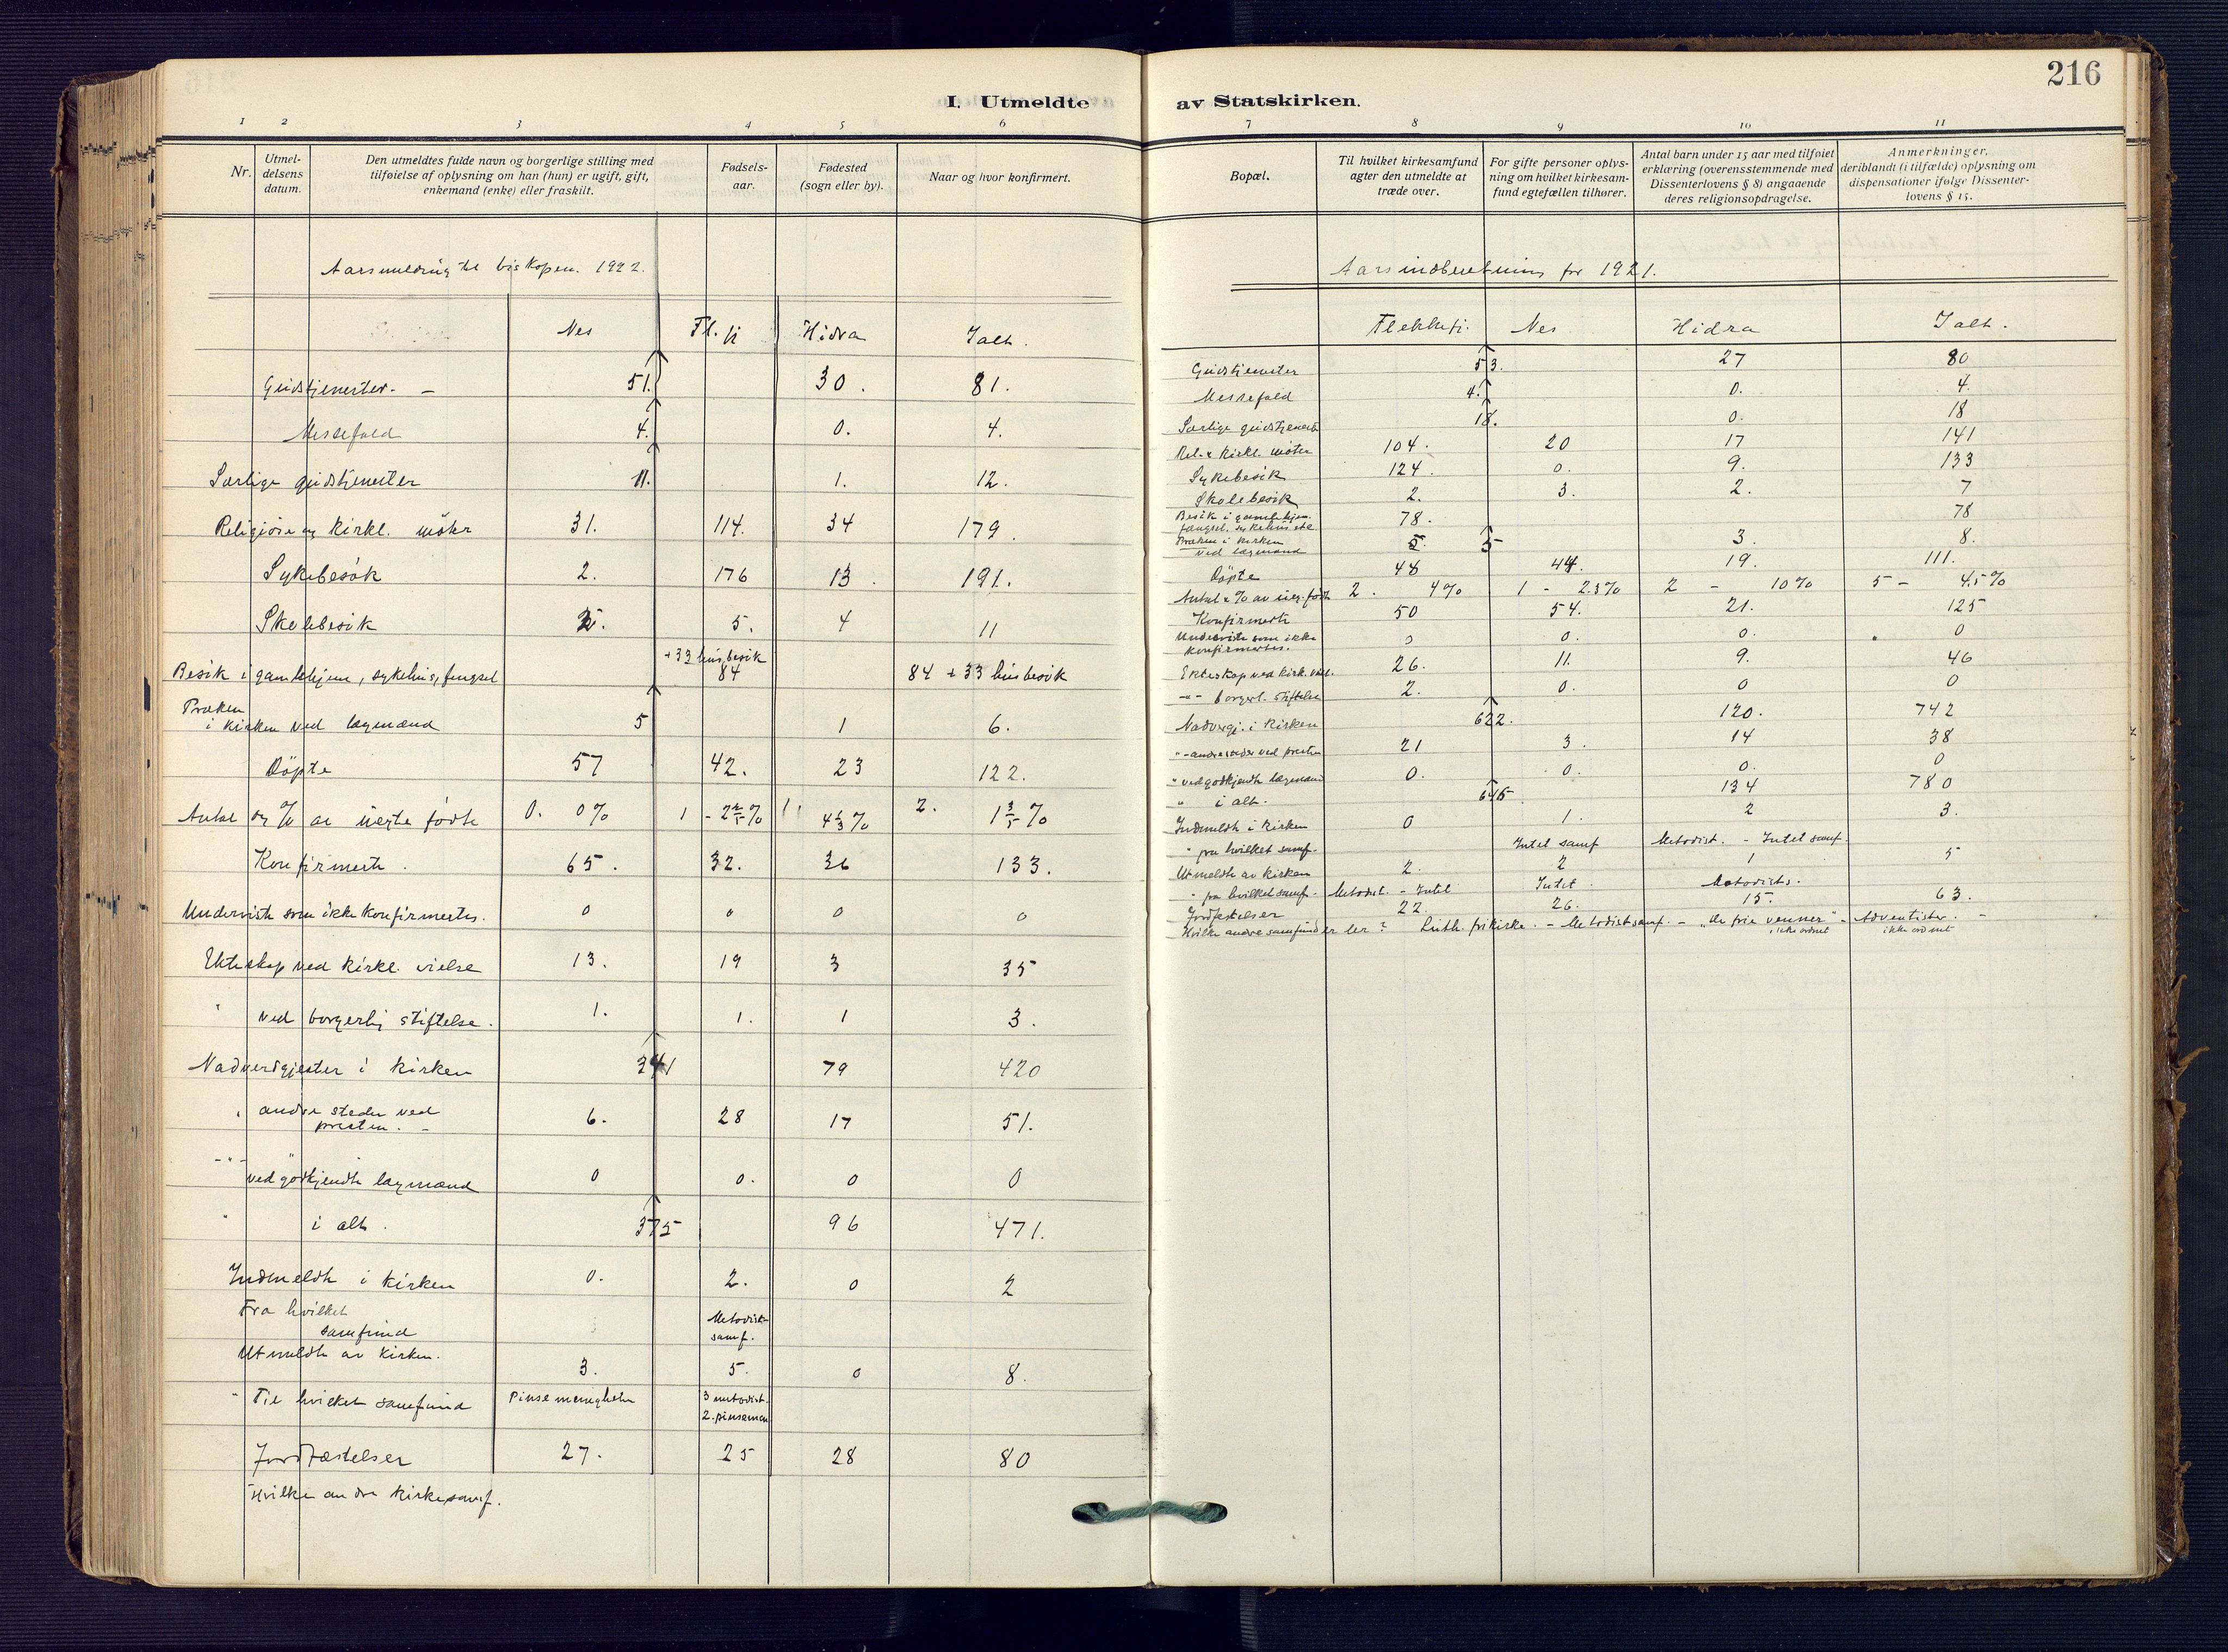 216
I. Utmeldte av Statskirken.
1 2 3 4 5 6
Nr.
Utmel-
delsens
datum.
Den utmeldtes fulde navn og borgerlige stilling med
tilføielse af oplysning om han (hun) er ugift, gift,
enkemand (enke) eller fraskilt.
Fødsels-
aar.
Fødested
(sogn eller by).
Naar og hvor konfirmert.
Aarsmelding til biskopen. 1922.
Nes Fl.fj Hidra Ialt.
Gudstjenester - 51. 30. 81.
Messefald 4. 0. 4.
Særlige gudstjenester 11. 1. 12.
Religiöse og kirkl. möter 31. 114. 34 179.
Sykebesök 2. 176 13. 191.
Skolebesök 2. 5. 4 11
+ 33 husbesök
Besök i gamlehjem, sykehus, fengsel 84 84 + 33 husbesök
Præken
i kirken ved lægmænd 5 1 6.
Döpte 57 42. 23 122.
Antal og % av uegte födte 0. 0% 1 - 2 2/5 % 1. 4 1/3 % 2. 1 3/5 %
Konfirmerte. 65. 32. 36 133.
Underviste som ikke konfirmertes. 0 0 0 0
Ekteskap ved kirkl. vielse 13. 19 3 35
" ved borgerlig stiftelse. 1. 1. 1 3.
Nadverdgjester i kirken 341 79 420
" andre steder ved
presten. - 6. 28 17 51.
- " - ved godkjendte lægmænd 0 0. 0 0
" i alt. 375 96 471.
Indmeldte i kirken 0. 2. 0 2
Fra hvilket
samfund
Metodist-
samf.
Utmeldte av kirken. 3. 5. 0 8.
" Til hvilket samfund Pinsemenigheten
3 metodist.
2. pinsemen
Jordfæstelser 27. 25 28 80
Hvilke andre kirkesamf.
7 8 9 10 11
Bopæl.
Til hvilket kirkesamfund
agter den utmeldte at
træde over.
For gifte personer oplys-
ning om hvilket kirkesam-
fund egtefællen tilhører.
Antal barn under 15 aar med tilføiet
erklæring (overensstemmende med
Dissenterlovens § 8) angaaende
deres religionsopdragelse.
Anmerkninger,
deriblandt (i tilfælde) oplysning om
dispensationer ifølge Dissenter-
lovens § 15.
Aarsindberetning for 1921.
Flekkefj. Nes Hidra Ialt.
Gudstjenester 53. 27 80
Messefald 4. 0. 4.
Særlige gudstjenester 18. 0. 18
Rel. & kirkl. möter 104. 20 17 141
Sykebesök 124. 0. 9. 133
Skolebesök 2. 3. 2. 7
Besök i gamlehjem.
fængsel. sykehus etc. 78. 78
Præken i kirken
ved lægmænd 5. 5 3. 8.
Döpte 48 44. 19. 111.
Antal & % av ueg. födte 2. 4% 1 - 2.3% 2 - 10% 5 - 4.5%
Konfirmerte 50 54. 21. 125
Underviste som ikke
konfirmertes. 0 0. 0. 0
Ekteskap ved kirk. viel. 26. 11. 9. 46
- " - borgerl. stiftelse 2. 0. 0 0
Nadvergj. i kirken 622. 120. 742
" - andre steder ved presten 21 3. 14 38
" ved godkjendte lægmænd 0. 0. 0. 0
" i alt. 646 134 780
Indmeldte i kirken 0 1. 2 3.
" fra hvilket samf. Intet samf Metodist. - Intet samf.
Utmeldte av kirken 2. 2 1 5
" fra hvilket samf. - Metodist. - Intet Intet. Metodists.
Jordfestelser 22. 26. 15. 63.
Hvilke andre samfunder ler? Luth. frikirke. - Metodistsamf. - "De frie venner" - Adventister. -
ikke ordnet ikke ordnet